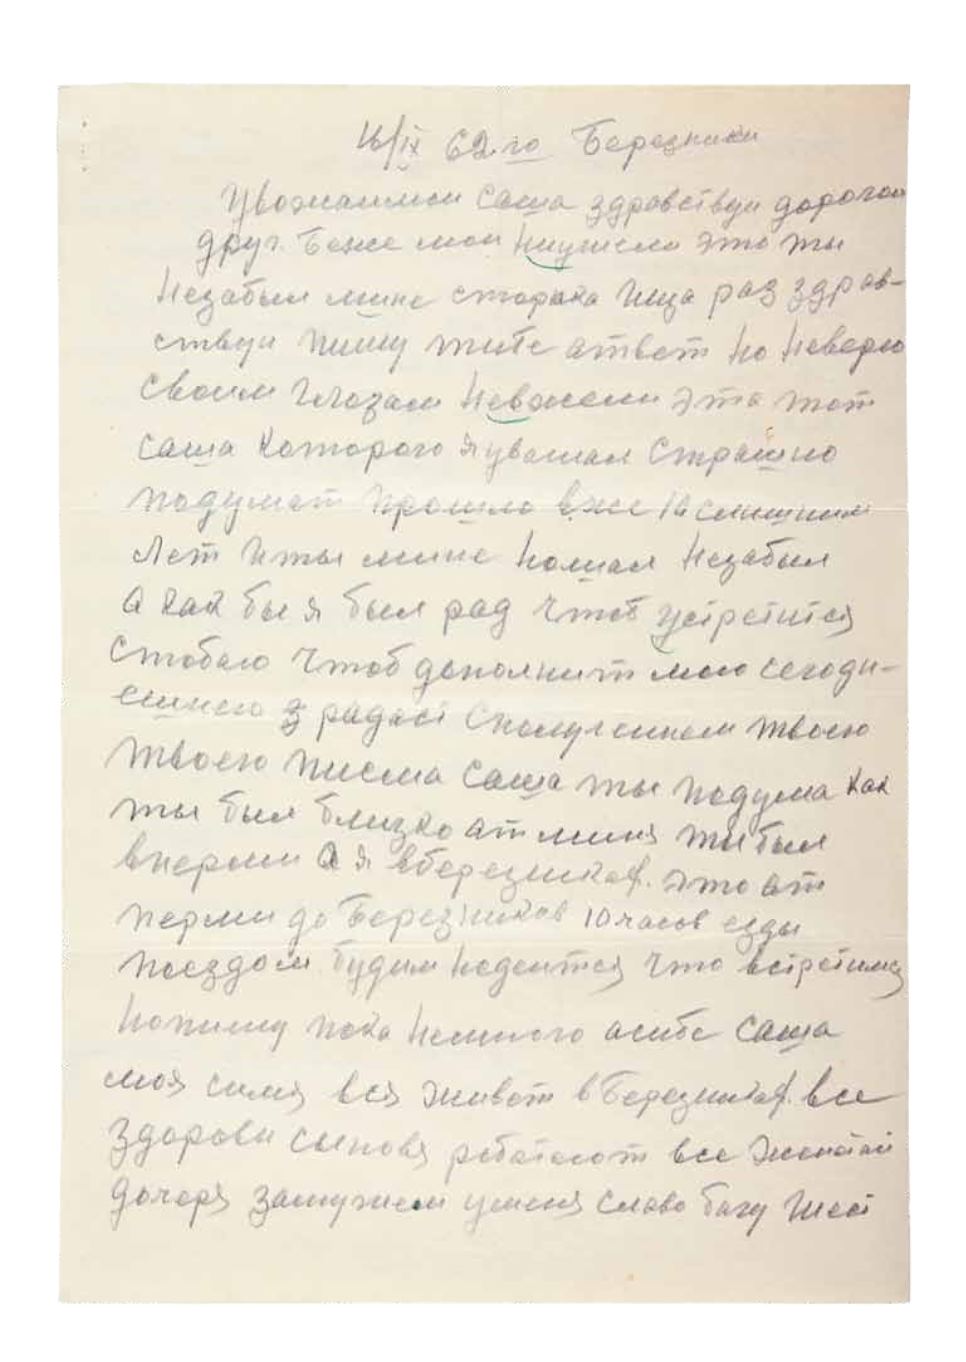 16/IX 62.го Березники
Уважаимеи Саша здравствуи дорогои
друг. Боже мои Ниужели это ты
Незабыл мине старика Ища раз здрав-
ствуи пишу тибе атвет но неверю
своим глазам Невжели эта тот
Саша Которого я уважал Страшно
подумат прошло вже 14 слишним
лет И ты мине помнал Незабыл
А как бы я был рад чтоб устретитса
стобою чтоб дополнит мою сегодн-
ешнею радост Сполучением твоею
твоею писма Саша ты подума как
ты был близко ат миня ты был
вперми А я вберезниках. это ат
перми до Березников 10 часов езды
поездом будим Надеитса что встретимса
Напишу пока Немного асибе Саша
моя симя вся живет в Березниках. все
здорови сыновя работают все Женатаи
дочеря замужем уменя слава багу Шест